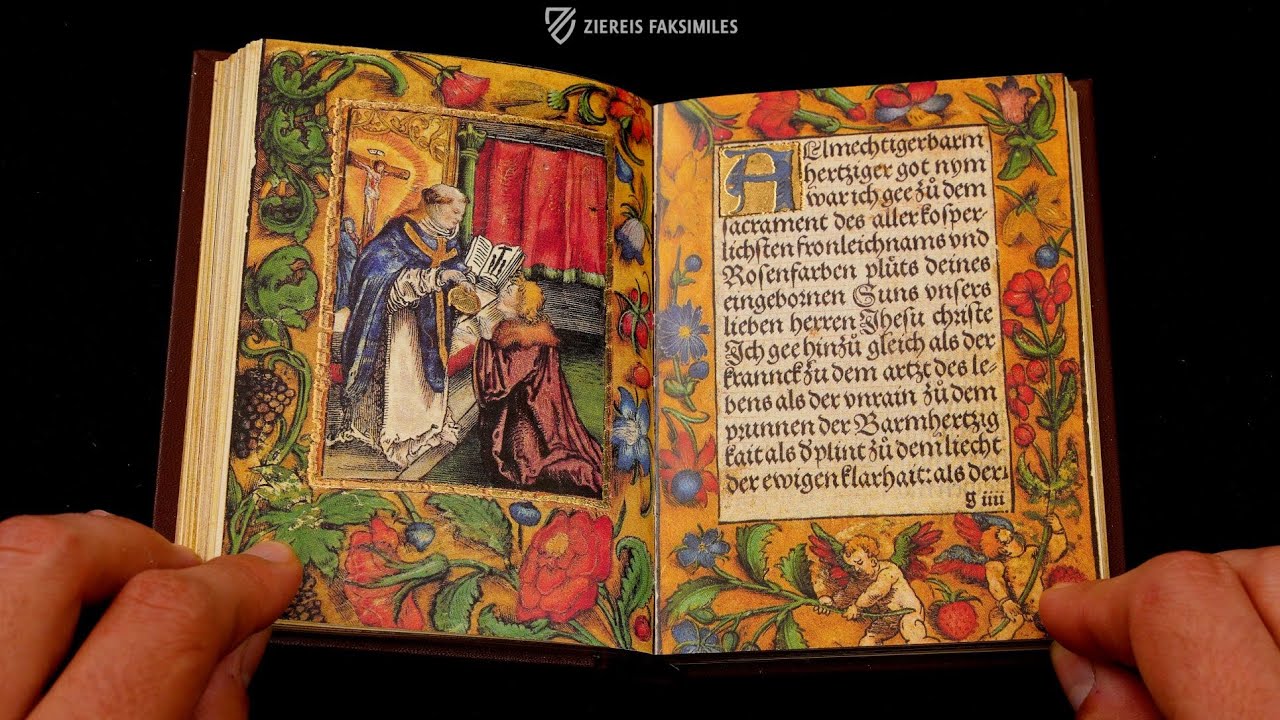 ZIEREIS FAKSIMILES
ALmechtiger barm
hertziger got nym
war ich gee zů dem
sacrament des allerkosper-
lichsten fronleichnams vnd
Rosenfarben plůts deines
eingebornen Suns vnsers
lieben herren Jhesu christe
Ich gee hinzů gleich als der
krannck zu dem artzt des le-
bens als der vnrain zů dem
prunnen der Barmhertzig
kait als d plint zů dem liecht
der ewigen klarhait: als der
g iiii